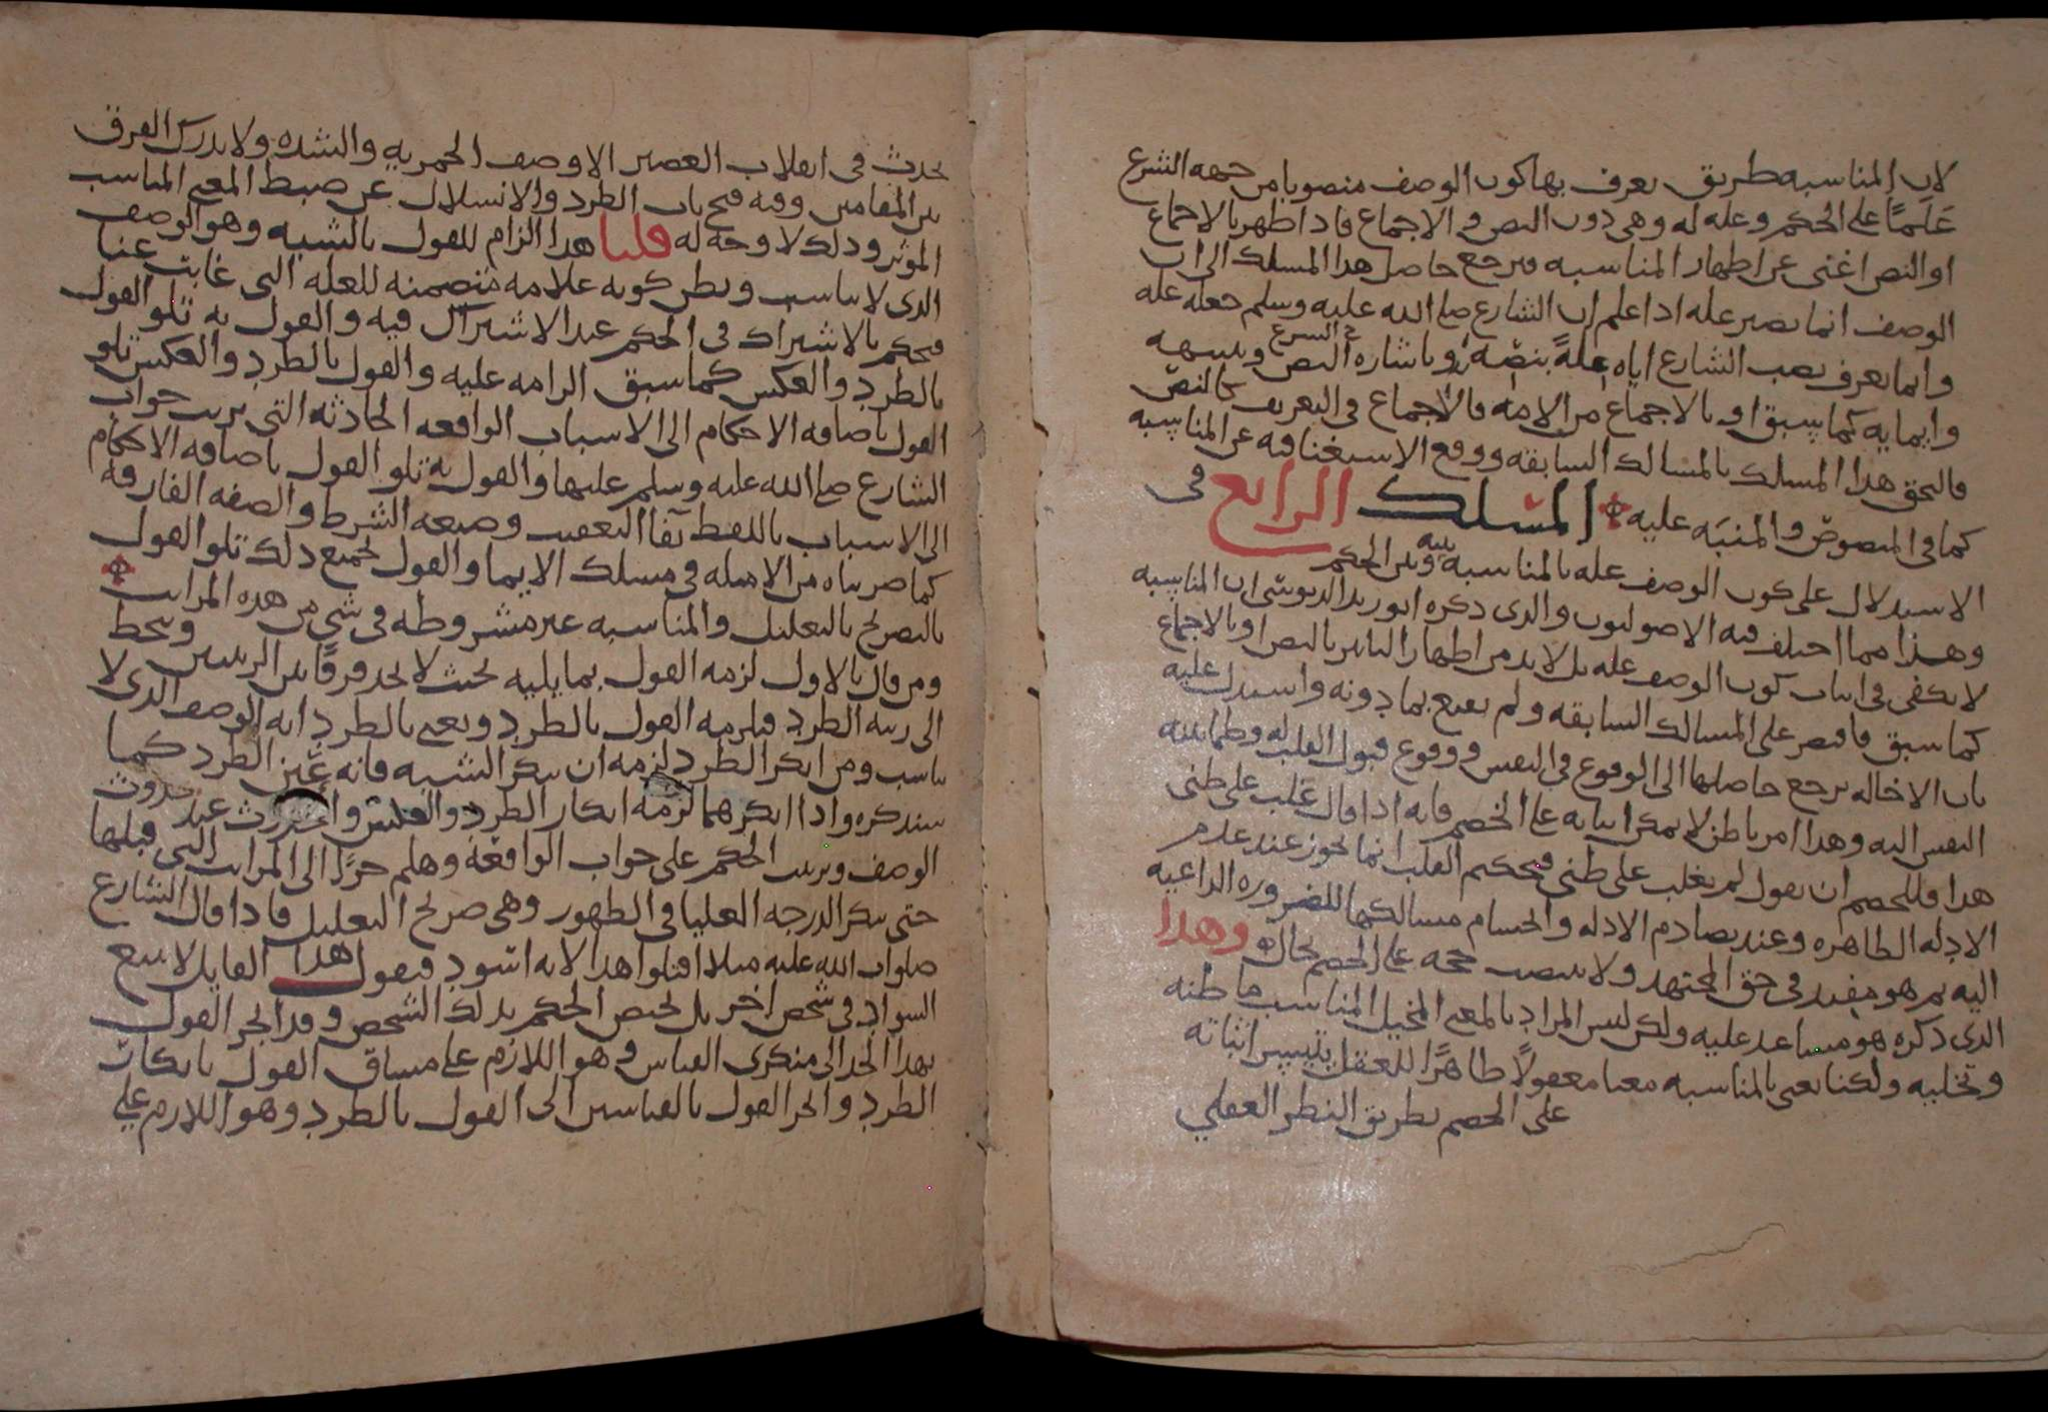 لان المناسبه طريق يعرف بها كون الوصف منصوبا من جهه الشرع
عَلَمًا على الحكم وعله له وهى دون النص والاجماع فاذا ظهر بالاجماع
او النص اغنى عن اظهار المناسبه فيرجع حاصل هذا المسلك الى ان
الوصف انما يصير عله اذا علم ان الشارع صلى الله عليه وسلم جعله عله
وانما يعرف نصب الشارع اياه علةً بنصّه او باشاره النص وتنبيهه
وايمايه كما سبق او بالاجماع من الامه فالاجماع فى التعريف كالنصّ
فالتحق هذا المسلك بالمسالك السابقه ووقع الاستغنا فيه عن المناسبه
كما فى المنصوص والمنبَه عليه المسلك الرابع فى
الاستدلال على كون الوصف عله بالمناسبه بينه وبين الحكم
وهذا مما اختلف فيه الاصوليون والذى ذكره ابو زيد الدبوسى ان المناسبه
لا تكفى فى اثبات كون الوصف عله بل لا بد من اظهار التاثير بالنص او بالاجماع
كما سبق فاقتصر على المسالك السابقه ولم يقنع بما دونه واستدل عليه
بان الاخاله يرجع حاصلها الى الوقوع فى النفس ووقوع قبول القلب له وطمانينه
النفس اليه وهذا امر باطن لا يمكن اثباته على الخصم فانه اذا قال غلب على ظنى
هذا فللخصم ان يقول لم يغلب على ظنى فتحكيم القلب انما يجوز عند عدم
الادله الظاهره وعند تصادم الادله وانحسام مسالكها للضروره الداعيه
اليه ثم هو مفيد فى حق المجتهد ولا ينتصب حجه على الخصم بحال وهذا
الذى ذكره هو مساعد عليه ولكن ليس المراد بالمعنى المخيل المناسب ما ظنه
وتخليه ولكنا نعنى بالمناسبه معنا معقولاً ظاهرًا للعقل يتيسر اثباته
على الخصم بطريق النظر العقلي
يحدث فى انقلاب العصير الا وصف الخمريه والشده ولا يدرك الفرق
بين المقامين وفيه فتح باب الطرد والانسلال عن ضبط المعنى المناسب
الموثر وذلك لا وجه له قلنا هذا الزام للقول بالشبه وهو الوصف
الذى لا يناسب ويظن كونه علامه متضمنه للعله التى غابت عنا
فيحكم بالاشتراك فى الحكم عند الاشتراك فيه والقول به تلو القول
بالطرد والعكس كما سبق الزامه عليه والقول بالطرد والعكس تلو
القول باضافه الاحكام الى الاسباب الواقعه الحادثه التى ترتب جواب
الشارع صلى الله عليه وسلم عليها والقول به تلو القول باضافه الاحكام
الى الاسباب باللفظ بفا التعقيب وصيغه الشرط والصفه الفارقه
كما ضربناه من الامثله فى مسلك الايما والقول بجميع ذلك تلو القول
بالتصريح بالتعليل والمناسبه غير مشروطه فى شي من هذه المراتب
ومن قال بالاول لزمه القول بما يليه بحيث لا يجد فرقًا بين الرتبتين وينحط
الى رتبه الطرد فيلزمه القول بالطرد ونعنى بالطرد انه الوصف الذى لا
يناسب ومن انكر الطرد لزمه ان ينكر الشبه فانه عين الطرد كما
سنذكره واذا انكرهما لزمه انكار الطرد والعكس والحدوث عند حدوث
الوصف وترتيب الحكم على جواب الواقعة وهلم جرًا الى المراتب التى قبلها
حتى ينكر الدرجه العليا فى الظهور وهى صريح التعليل فاذا قال الشارع
صلوات الله عليه مثلا اقتلوا هذا لانه اسود فيقول هذا القايل لا يتبع
السواد فى شخص اخر بل يختص الحكم بذلك الشخص وقد انجر القول
بهذا الحد الى منكرى القياس وهو اللازم على مساق القول بانكار
الطرد وانجر القول بالقياسين الى القول بالطرد وهو اللازم على